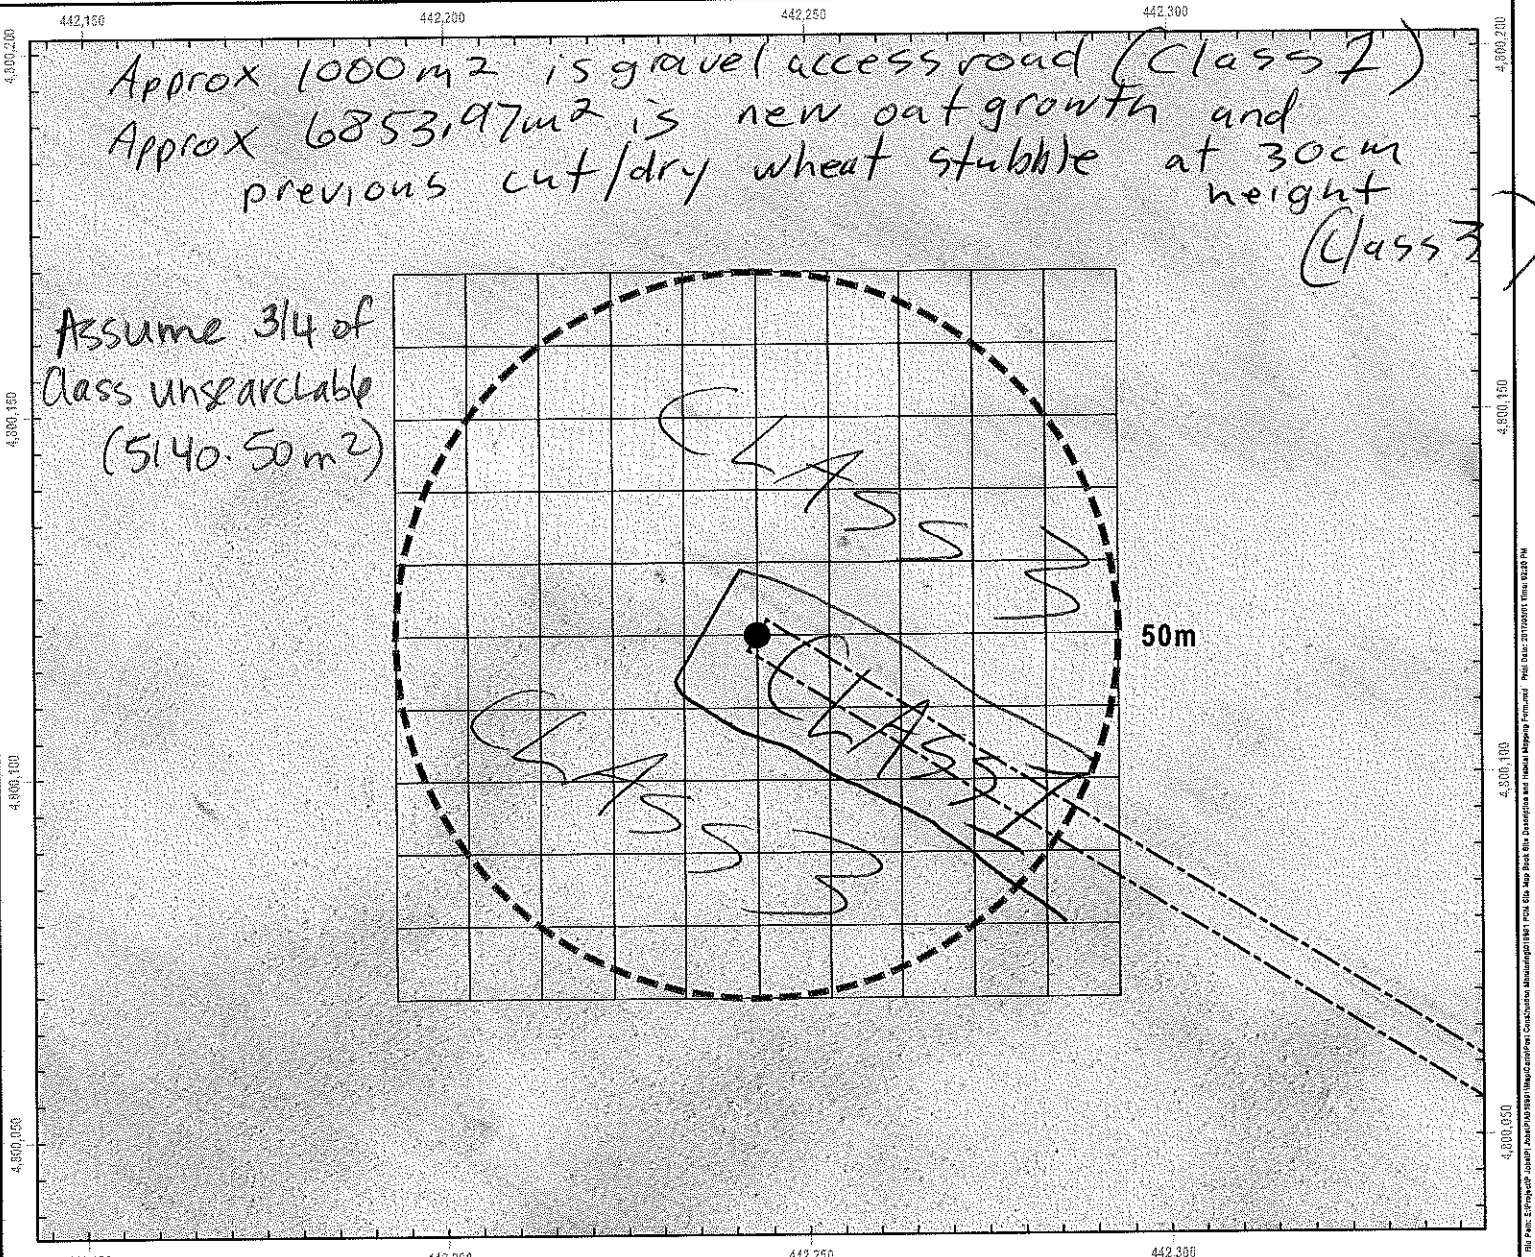 442,150 442,200 442,250 442,300
4,800,200 4,800,200
Approx 1000m2 is gravel access road (Class 1)
Approx 6853.97m2 is new oat growth and
previous cut/dry wheat stubble at 30cm
height
(Class 3)
Assume 3/4 of
Class unsearchable
(5140.50m2)
4,800,150 4,800,150
CLASS 3
50m
CLASS 1
CLASS 3
4,800,100 4,800,100
4,800,050 4,800,050
442,200 442,250 442,300